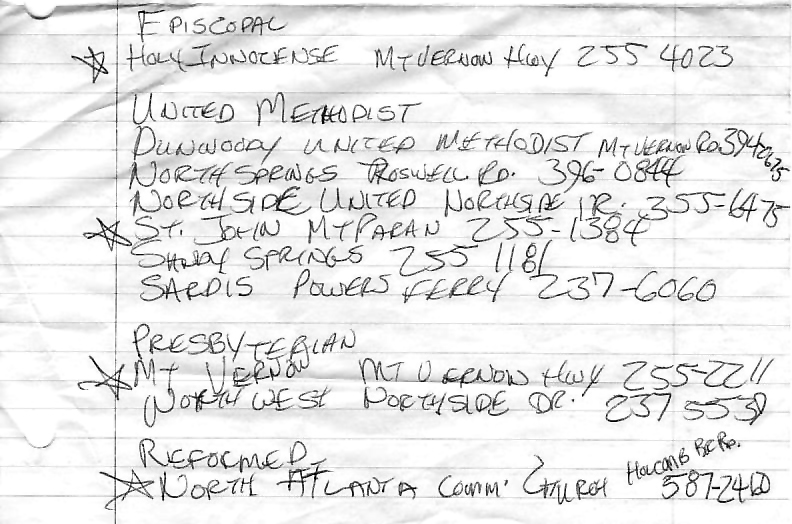 EPISCOPAL
HOLY INNOCENSE MT VERNON HWY 255 4023
UNITED METHODIST
DUNWOODY UNITED METHODIST MT VERNON RD. 394-2675
NORTH SPRINGS ROSWELL RD. 396-0844
NORTHSIDE UNITED NORTHSIDE DR. 355-6475
ST. JOHN MT PARAN 255-1384
SANDY SPRINGS 255 1181
SARDIS POWERS FERRY 237-6060
PRESBYTERIAN
MT VERNON MT VERNON HWY 255-2211
NORTHWEST NORTHSIDE DR. 237 5539
REFORMED
NORTH ATLANTA COMM. CHURCH HOLCOMB BR RD.
587-2460